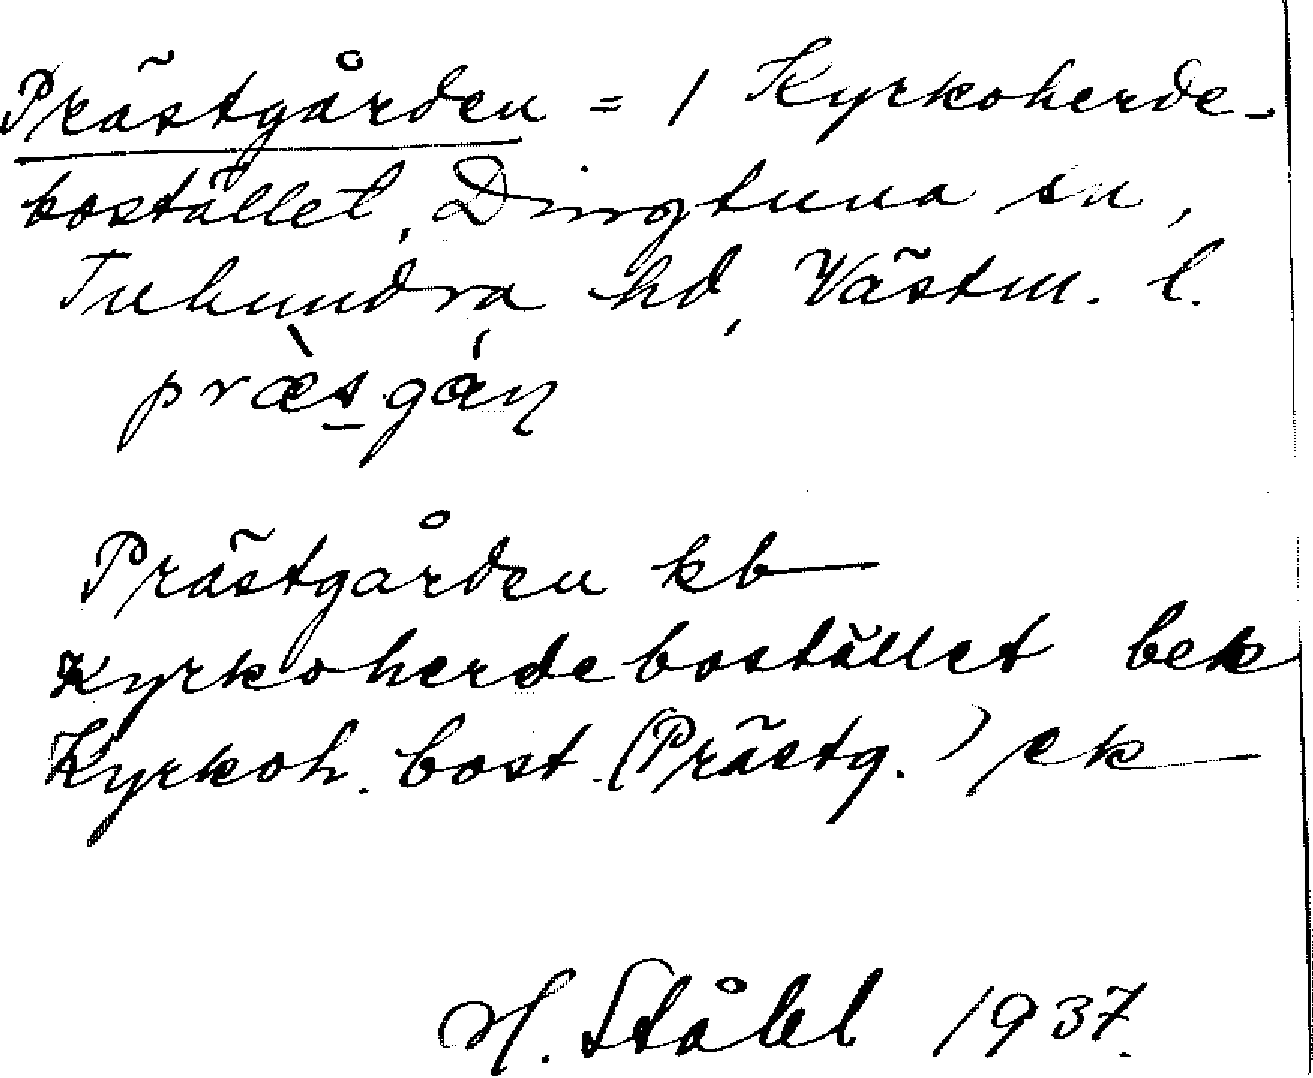 Prästgården = 1 Kyrkoherde-
bostället, Dingtuna sn,
Tuhundra hd, Västm. l.
præ̀s̲gáɳ
Prästgården kb
Kyrkoherdebostället bek
Kyrkoh. bost. (Prästg.) ek
H. Ståhl 1937.